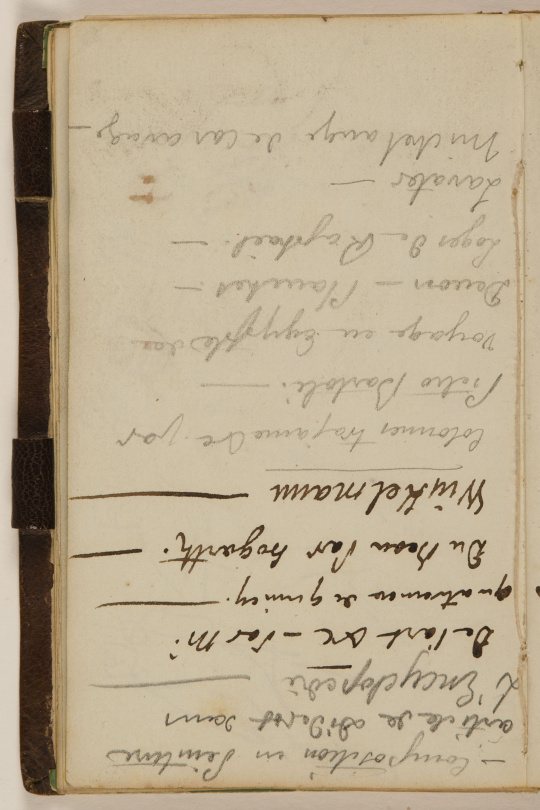 — Composition en Peinture
article de Diderot dans
L'Encyclopedie
De l'art &c — Par Mr.
quatremer de quincy.
Du Beau Par hogarth.
Winkelmann
Colonnes trajanne &c par
Pietro Bartoli.
Voyage en Egypte
Denon — Planches —
Loges de Raphael. —
Lavater —
Michel ange de Caravage —